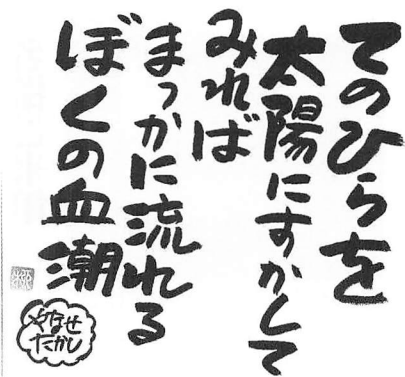 てのひらを
太陽にすかして
みれば
まっかに流れる
ぼくの血潮
やなせ
たかし